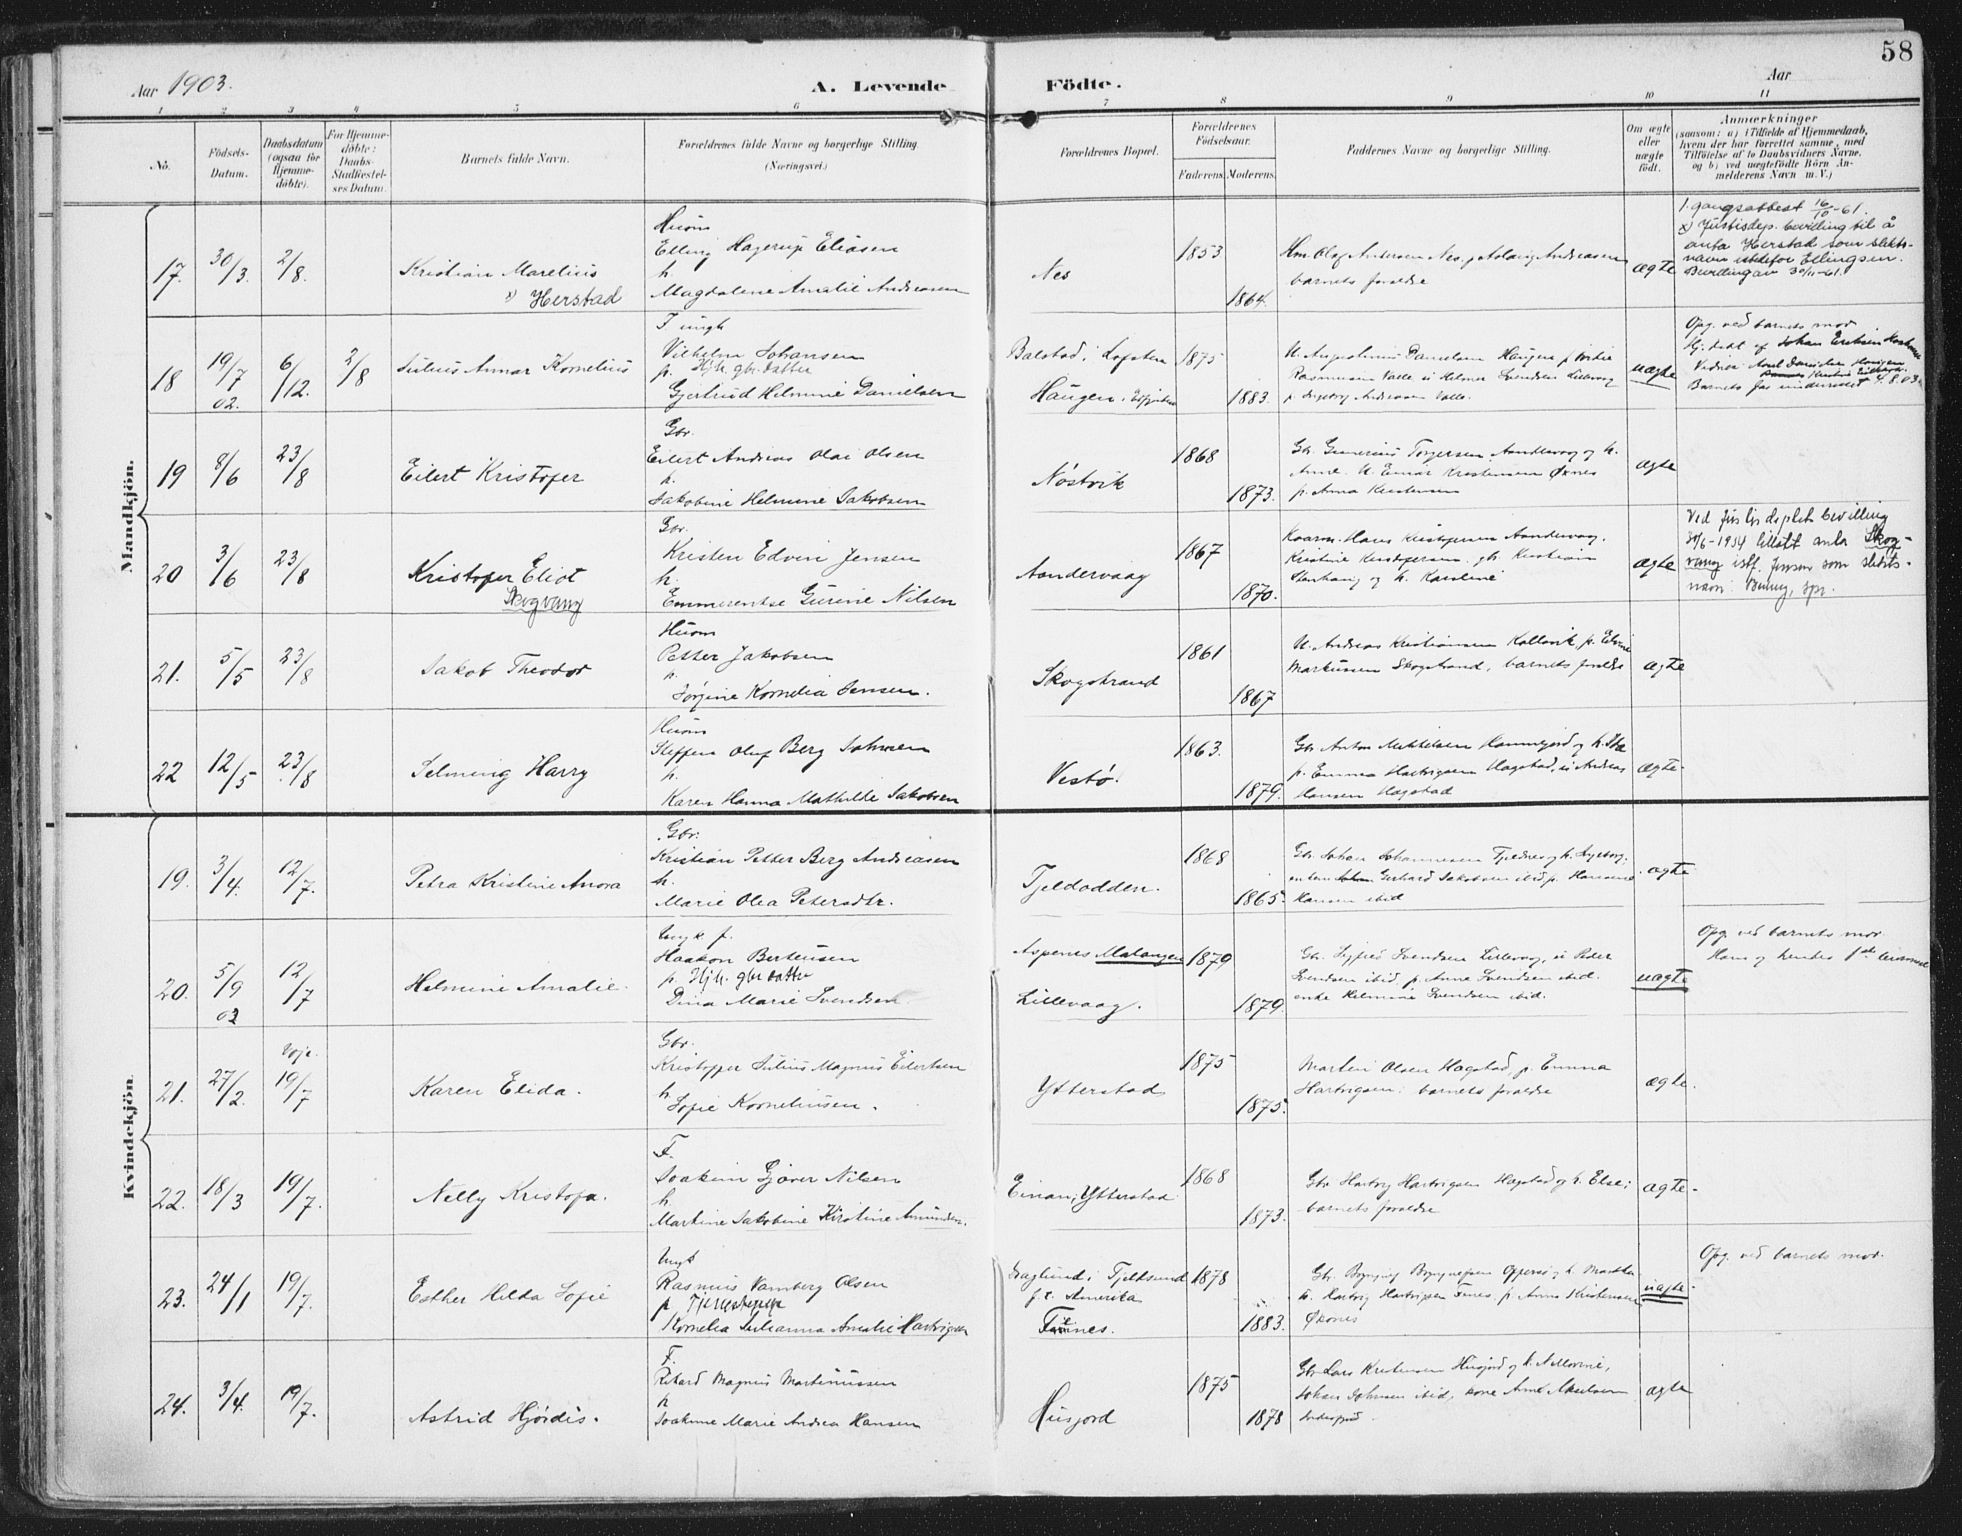 58
Aar 1903.
A. Levende
Födte.
Aar
1 2 3 4 5 6 7 8 9 10 11
No.
Födsels-
Datum.
Daabsdatum
(ogsaa for
Hjemme-
döbte).
For Hjemme-
döbte:
Daabs-
Stadfæstel-
ses Datum.
Barnets fulde Navn.
Forældrenes fulde Navne og borgerlige Stilling
(Næringsvei.)
Forældrenes Bopæl.
Forældrenes
Födselsaar.
Faderens.
Moderens.
Faddernes Navne og borgerlige Stilling.
Om ægte
eller
uægte
födt.
Anmærkninger
(saasom: a) i Tilfælde af Hjemmedaab,
hvem der har forrettet samme, med
Tilföielse af to Daabsvidners Navne,
og b) ved uægtefödte Börn An-
melderens Navn m. V.)
Mandkjön.
17.
30/3.
2/8.
Kristian Marelius
x) Herstad
Husm
Elling Hagerup Eliasen
h.
Magdalene Amalie Andreasen
Nes
1853
1864.
Hm. Olaf Andersen Nes, p. Aslaug Andreasen
barnets forældre
ægte
1. gangsattest 16/10-61.
x) Justisdep. bevilling til å
anta Herstad som slekts-
navn istedefor Ellingsen.
Bevilling av 30/11-61.
18
19/7
02.
6/12.
2/8
Julius Annar Kornelius
F. ungk
Vilhelm Johansen
p. Hjh. gbr. datter
Gjertrud Helmine Danielsen
Balstad i Lofoten
Haugen i
1875
1883.
U. Augustinus Danielsen Haugen p.
Rasmussen Valle u. Helmer Svendsen Lillevaag
p. Ingeborg Andreasen Valle.
uægte
Opg. ved barnets mor
Hj. døbt af Johan Eriksen
Vidner: Axel Danielsen Haugen
Barnets far underrettet 4.8.03.
19
8/6
23/8
Eilert Kristofer
Gbr.
Eilert Andreas Olai Olsen
h.
Jakobine Helmine Jakobsen
Nøstvik
1868
1873.
Gbr. Gunerius Torgersen Aandervaag og h.
Anne. U. Einar Kristensen Øxnes
p. Anna Kristensen
ægte
20
3/6
23/8
Kristofer Eliot
Skogvang
Gbr.
Kristen Edvin Jensen
h.
Emmerentse Gurine Nilsen
Aandervaag
1867
1870.
Kaarm. Hans Kristofersen Aandervaag.
Kristine Kristofersen. gbr. Kristian
Stenhaug og h. Karoline
ægte
Ved Justisdeptets bevilling
30/6-1934 tillatt anta Skog-
vang istf. Jensen som slekts-
navn.
21.
5/5
23/8
Jakob Theodor
Husm
Petter Jakobsen
h.
Jørgine Kornelia Jensen.
Skogstrand
1861
1867
U. Andreas Kristiansen Kallevik, p. Edvine
Markussen Skogstrand, barnets forældre
ægte
22
12/5
23/8
Selming Harry
Husm
Steffen Oluf Berg Johnsen
h.
Karen Hanna Mathilde Jakobsen
Vestø.
1863.
1879.
Gbr. Anton Mikkelsen Hammerjord og h. Ida
p. Emma Hartvigsen Hagstad, u. Andreas
Hansen Hagstad
ægte.
Kvindekjön.
19.
3/4.
12/7.
Petra Kristine Anora
Gbr.
Kristian Petter Berg Andreasen
h.
Marie Olea Petersdtr.
Tjeldodden.
1868
1865.
Gbr. Johan Johannesen Tjeldnes og h. Ingeborg,
Gerhard Jakobsen ibid p. Hansine
Hansen ibid
ægte
20.
5/9
02
12/7
Helmine Amalie.
Ungk. f.
Haakon Berteusen
p. Hjh. gbr datter
Dina Marie Svendsen
Aspenes Malangen
Lillevaag.
1879
1879.
Gbr. Sigfred Svendsen Lillevaag, u. Peder
Svendsen ibid, p. Anna Svendsen ibid.
enke Helmine Svendsen ibid.
uægte
Opg. ved barnets mor
Hans og hendes 1ste leiermaal
21.
27/2.
19/7
Karen Elida.
Gbr.
Kristoffer Julius Magnus Eilertsen
h.
Sofie Korneliusen.
Ytterstad
1875
1875.
Martin Olsen Hagstad, p. Emma
Hartvigsen: barnets forældre
ægte.
22.
18/3
19/7.
Nelly Kristofa.
F.
Joakim Gjæver Nilsen
h.
Martine Jakobine Kirstine Amundsen.
Einan, Ytterstad
1868
1873.
Gbr Hartvig Hartvigsen Hagstad og h. Else;
barnets forældre
ægte.
23.
24/1
19/7.
Esther Hilda Sofie
Ungk
Rasmus Vamberg Olsen
p. Tjenestepige
Kornelia Julianna Amalie Hartvigsen
i Tjeldsund
f. t. Amerika
Fænes.
1878
1883.
u. Hartvig Hartvigsen Fænes. p. Anna Kristensen
Øxnes
uægte.
Opg. ved barnets mor.
24.
3/4.
19/7.
Astrid Hjørdis.
F.
Rikard Magnus Martinussen
h
Joakime Marie Andrea Hansen
Husjord
1875
1878
Gbr Lars Kristensen Husjord og h. Nellovine,
Johan Johnsen ibid, kone Anne Akselsen
ægte